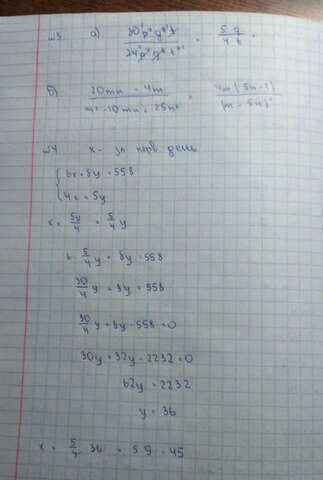 №3 а) 30 p⁴ g⁴ t / 24 p⁴ g³ t⁴ = 5 g / 4 t
б) 20mn - 4m / m² - 10mn + 25n² = 4m (5n - 1) / (m - 5n)²
№4 x - за перв день
{ 6x + 8y = 558
4x = 5y
x = 5y/4 = 5/4 y
6 · 5/4 y + 8y = 558
30/4 y + 8y = 558
30/4 y + 8y - 558 = 0
30y + 32y - 2232 = 0
62y = 2232
y = 36
x = 5/4 · 36 = 5 · 9 = 45